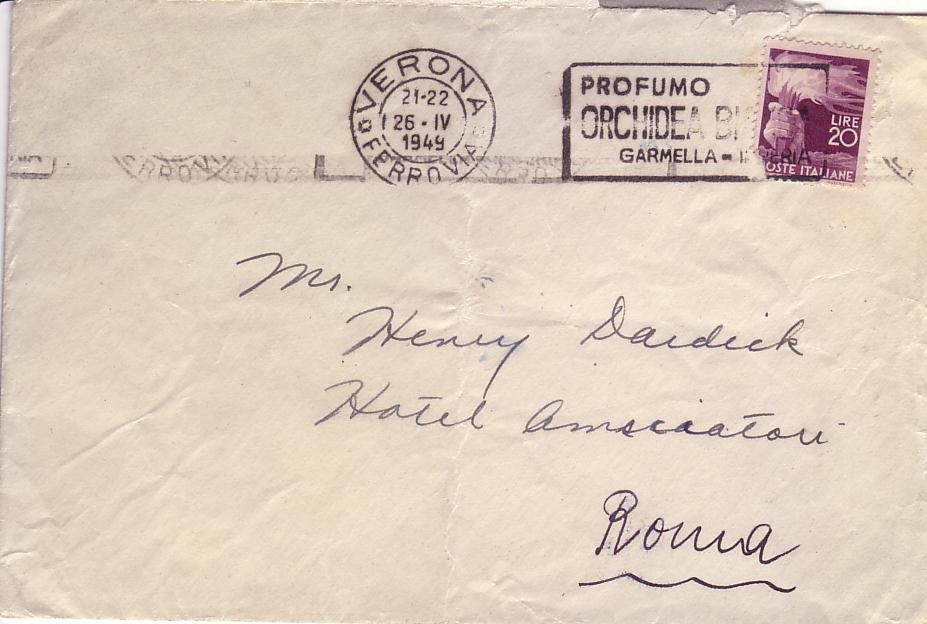 VERONA
21-22
26 · IV
1949
FERROVIA
PROFUMO
ORCHIDEA
GARMELLA -
LIRE
20
POSTE ITALIANE
Mr.
Henry Dardick
Hotel Amsciatori
Roma